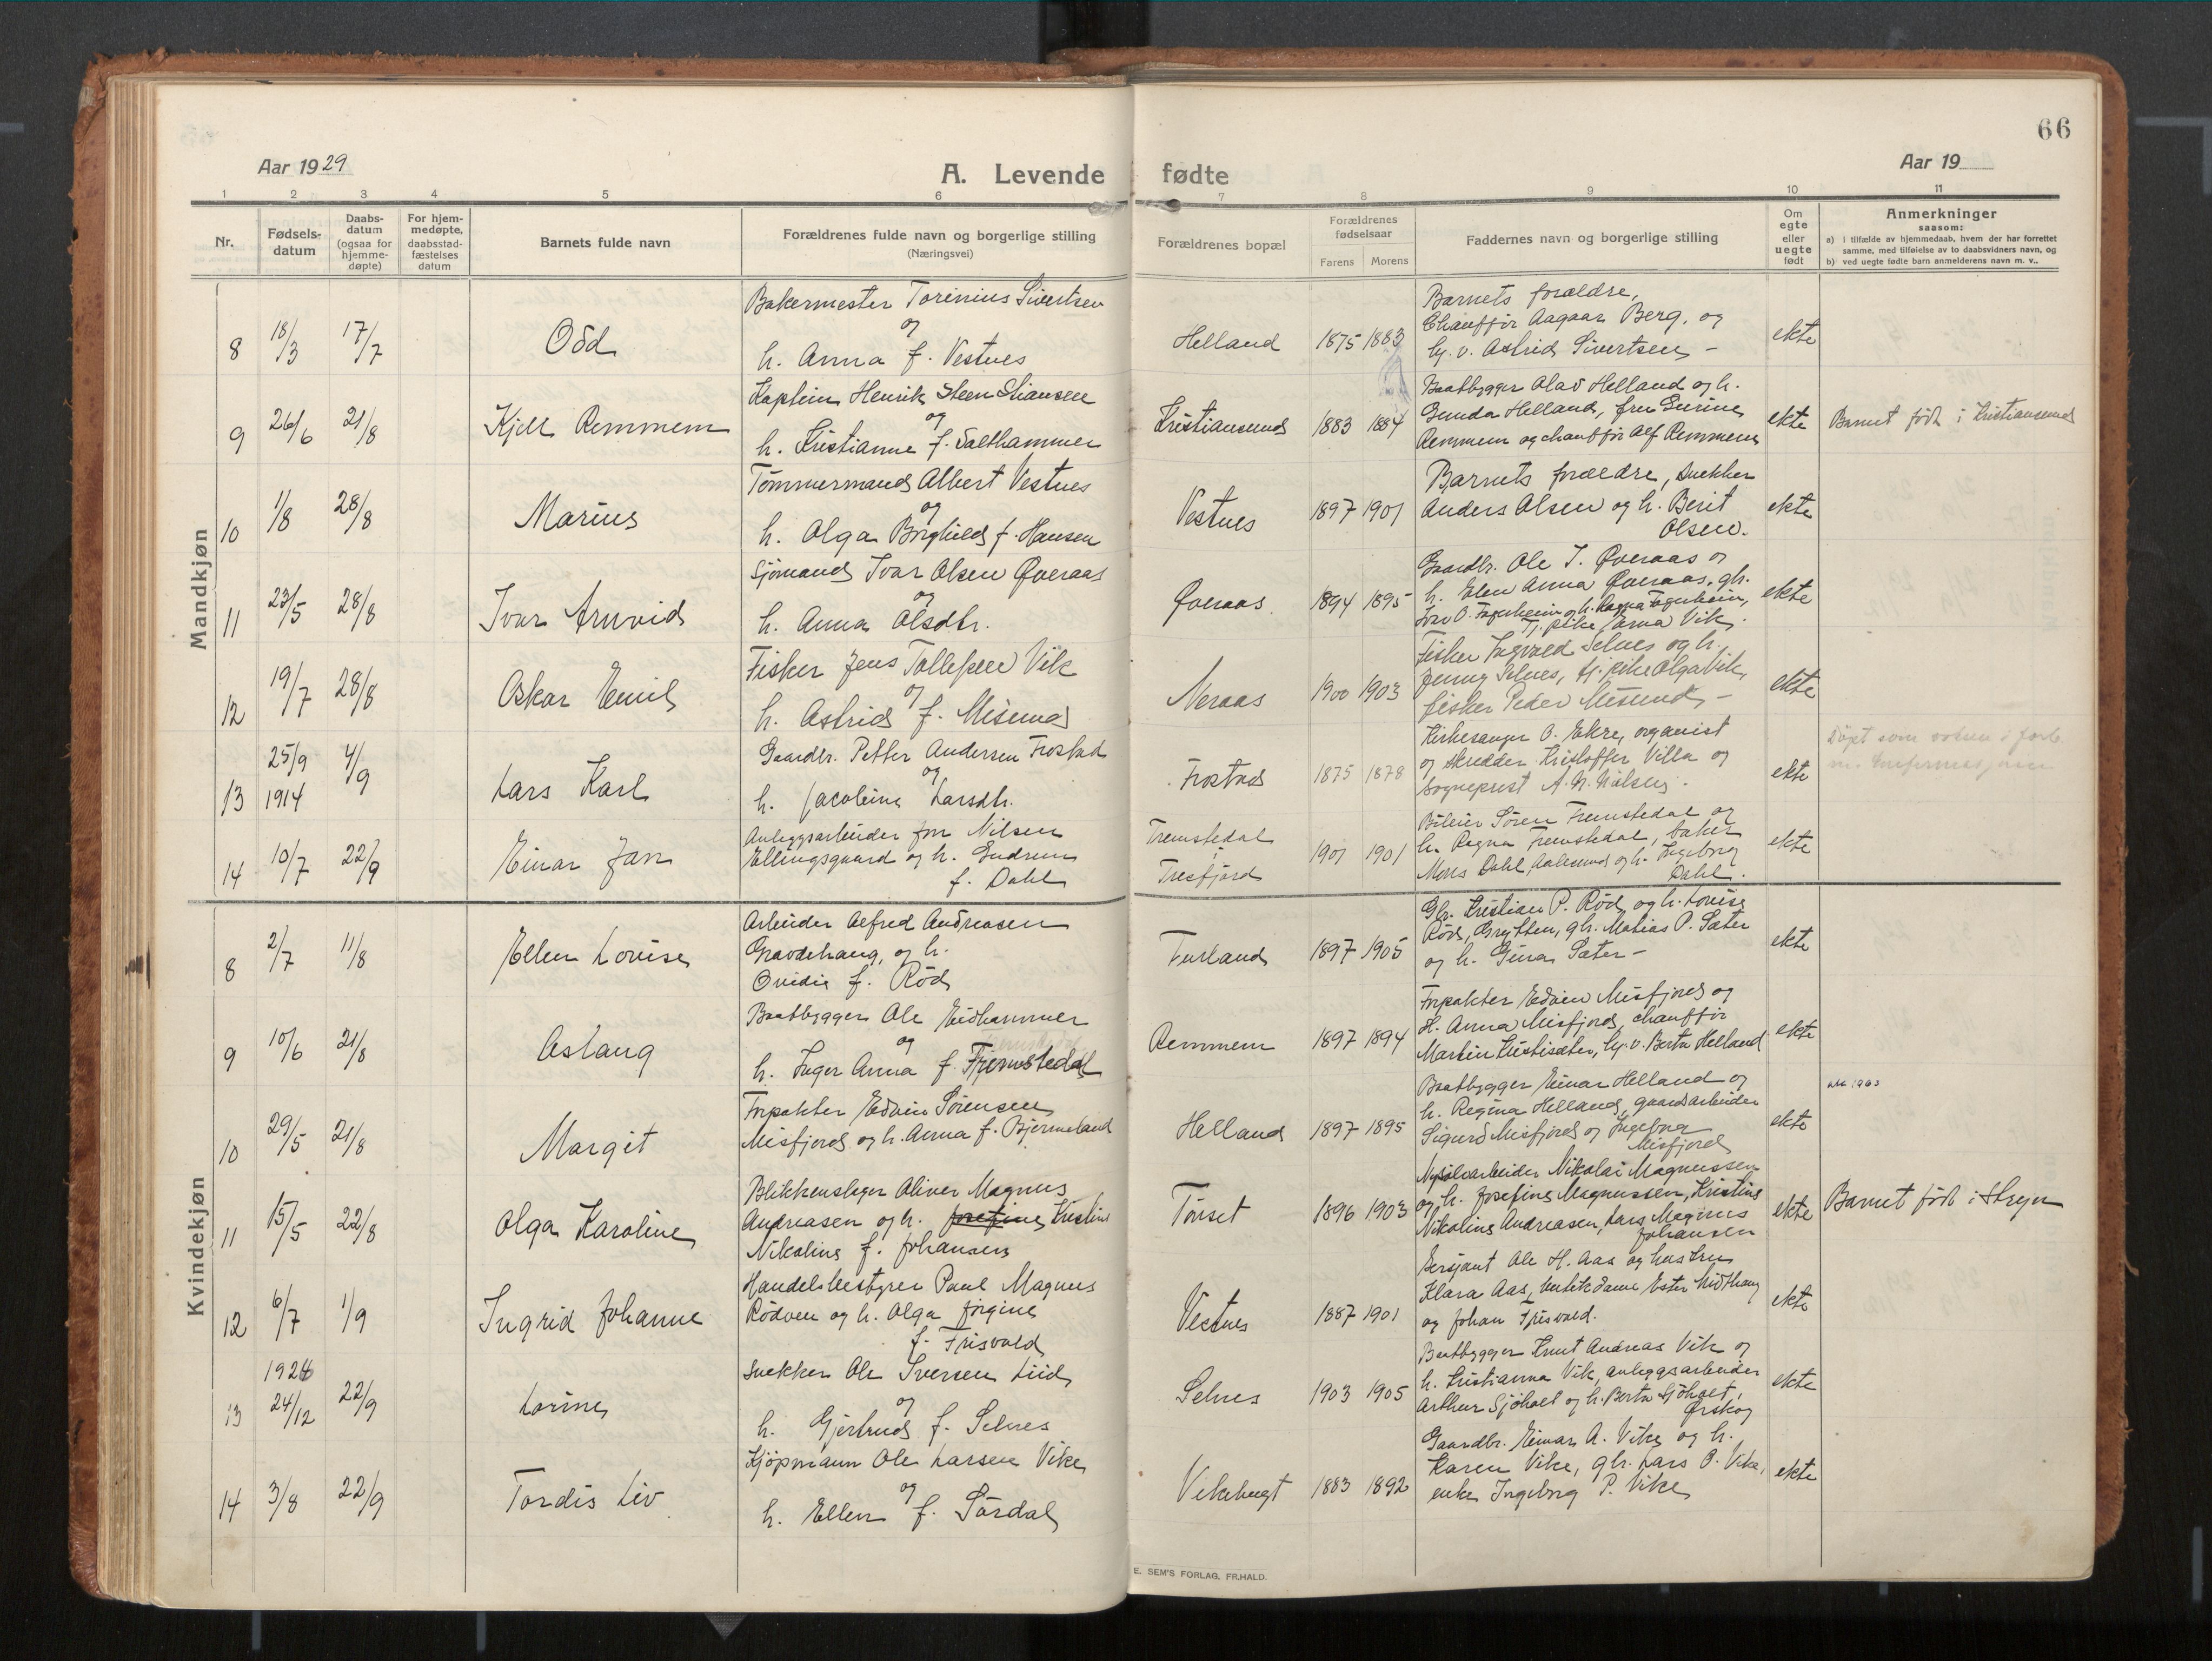 66
Aar 1929
A. Levende fødte
Aar 19
1 2 3 4 5 6 7 8 9 10 11
Nr.
Fødsels-
datum
Daabs-
datum
(ogsaa for
hjemme-
døpte)
For hjem-
medøpte,
daabsstad-
fæstelses
datum
Barnets fulde navn
Forældrenes fulde navn og borgerlige stilling
(Næringsvei)
Forældrenes bopæl
Forældrenes
fødselsaar
Farens Morens
Faddernes navn og borgerlige stilling
Om
egte
eller
uegte
født
Anmerkninger
saasom:
a) i tilfælde av hjemmedaab, hvem der har forrettet
samme, med tilføielse av to daabsvidners navn, og
b) ved uegte fødte barn anmelderens navn m. v..
Mandkjøn
8 18/3 17/7 Odd
Bakermester Torinius Sivertsen
og
h. Anna f. Vestnes
Helland 1875 1883
Barnets forældre,
Chauffør Aagaar Berg, og
Astrid Sivertsen –
ekte
9 26/6 21/8 Kjell Remmem
Kaptein Henrik Steen Stiansen
og
h. Kristianne f. Salthammer
Kristiansund 1883 1884
Baatbygger Olav Helland og h.
Gunda Helland, fru Gurine
Remmem og chauffør Alf Remmem
ekte
Barnet født i Kristiansund
10 1/8 28/8 Marius
Tømmermand Albert Vestnes
og
h. Olga Borghild f. Hansen
Vestnes 1897 1901
Barnets forældre, snekker
Anders Olsen og h. Berit
Olsen.
ekte
11 23/5 28/8 Ivar Arnvid
Sjømand Ivar Olsen Øveraas
og
h. Anna Olsdtr.
Øveraas 1894 1895
Gaardbr. Ole I. Øveraas og
h. Elen Anna Øveraas, gbr.
Ivar O. Fagerheim og h. Ragna Fagerheim,
Tj. pike Erna Vik.
ekte
12 19/7 28/8 Oskar Emil
Fisker Jens Tollefsen Vik
og
h. Astrid f. Misund
Neraas 1900 1903
Fisker Ingvald Selnes og h.
Jenny Selnes, tj. pike Olga Vik,
fisker Peder Misund –
ekte
13 25/9 1914 4/9 Lars Karl
Gaardbr. Petter Andersen Frostad
og
h. Jacobine Larsdtr.
Frostad 1875 1878
Kirkesanger O. Ekre, organist
og skredder Kristoffer Villa og
sogneprest A. N. Nilsen.
ekte
Døpt som voksen i forb.
14 10/7 22/9 Einar Jan
Anleggsarbeider Jon Nilsen
Ellingsgaard og h. Gudrun
f. Dahl
Tremstedal
i
Tresfjord
1901 1901
Bileier Søren Fremstedal og
h. Ragna Fremstedal, baker
Mons Dahl, Aalesund og h. Ingeborg
Dahl.
ekte
Kvindekjøn
8 2/7 11/8 Ellen Lovise
Arbeider Alfred Andreasen
Gravdehaug, og h.
Ovidie f. Rød
Furland 1897 1905
Gbr. Kristian P. Rød og h. Lovise
Rød, Grytten, gbr. Matias P. Sæter
og h. Gina Sæter –
ekte
9 10/6 21/8 Aslaug
Baatbygger Ole Eidhammer
og
h. Inger Anna f. Fremstedal
Remmem 1897 1894
Forpakter Edvin Misfjord og
H. Anna Misfjord, chauffør
Martin Kristisæter, Berta Helland
ekte
10 29/5 21/8 Margit
Forpakter Edvin Sørensen
Misfjord og h. Anna f. Bjermeland
Helland 1897 1895
Baatbygger Einar Helland og
h. Regina Helland, gaardsarbeider
Sigurd Misfjord og Ingeborg
Misfjord
ekte
11 15/5 22/8 Olga Karoline
Blikkenslager Oliver Magnus
Andreasen og h. Josefine Kristine
Nikoline f. Johansen
Tønset 1896 1903
Nikolai Magnussen
og h. Josefine Magnussen, Kristine
Nikoline Andreasen, Lars Magnus
Johansen
ekte
Barnet født i Stryn
12 6/7 1/9 Ingrid Johanne
Handelsbestyrer Paul Magnus
Rødven og h. Olga Jørgine
f. Frisvold
Vestnes 1887 1901
Sersjant Ole H. Aas og hustru
Klara Aas, butikdame Ester Midthaug
og Johan Frisvold.
ekte
13 1928 24/12 22/9 Lorine
Snekker Ole Iversen Liid
og
h. Gjertrud f. Selnes
Selnes 1903 1905
Baatbygger Knut Andreas Vik og
h. Kristianna Vik, anleggsarbeider
Arthur Sjøholt og h. Berta Sjøholt,
Ørskog
ekte
14 3/8 22/9 Tordis Liv
Kjøpmann Ole Larsen Vike
og
h. Ellen f. Sørdal
Vikebugt 1883 1892
Gaardbr. Einar A. Vike og h.
Karen Vike, gbr. Lars P. Vike,
enke Ingeborg P. Vike
ekte
E. SEM'S FORLAG, FR.HALD.